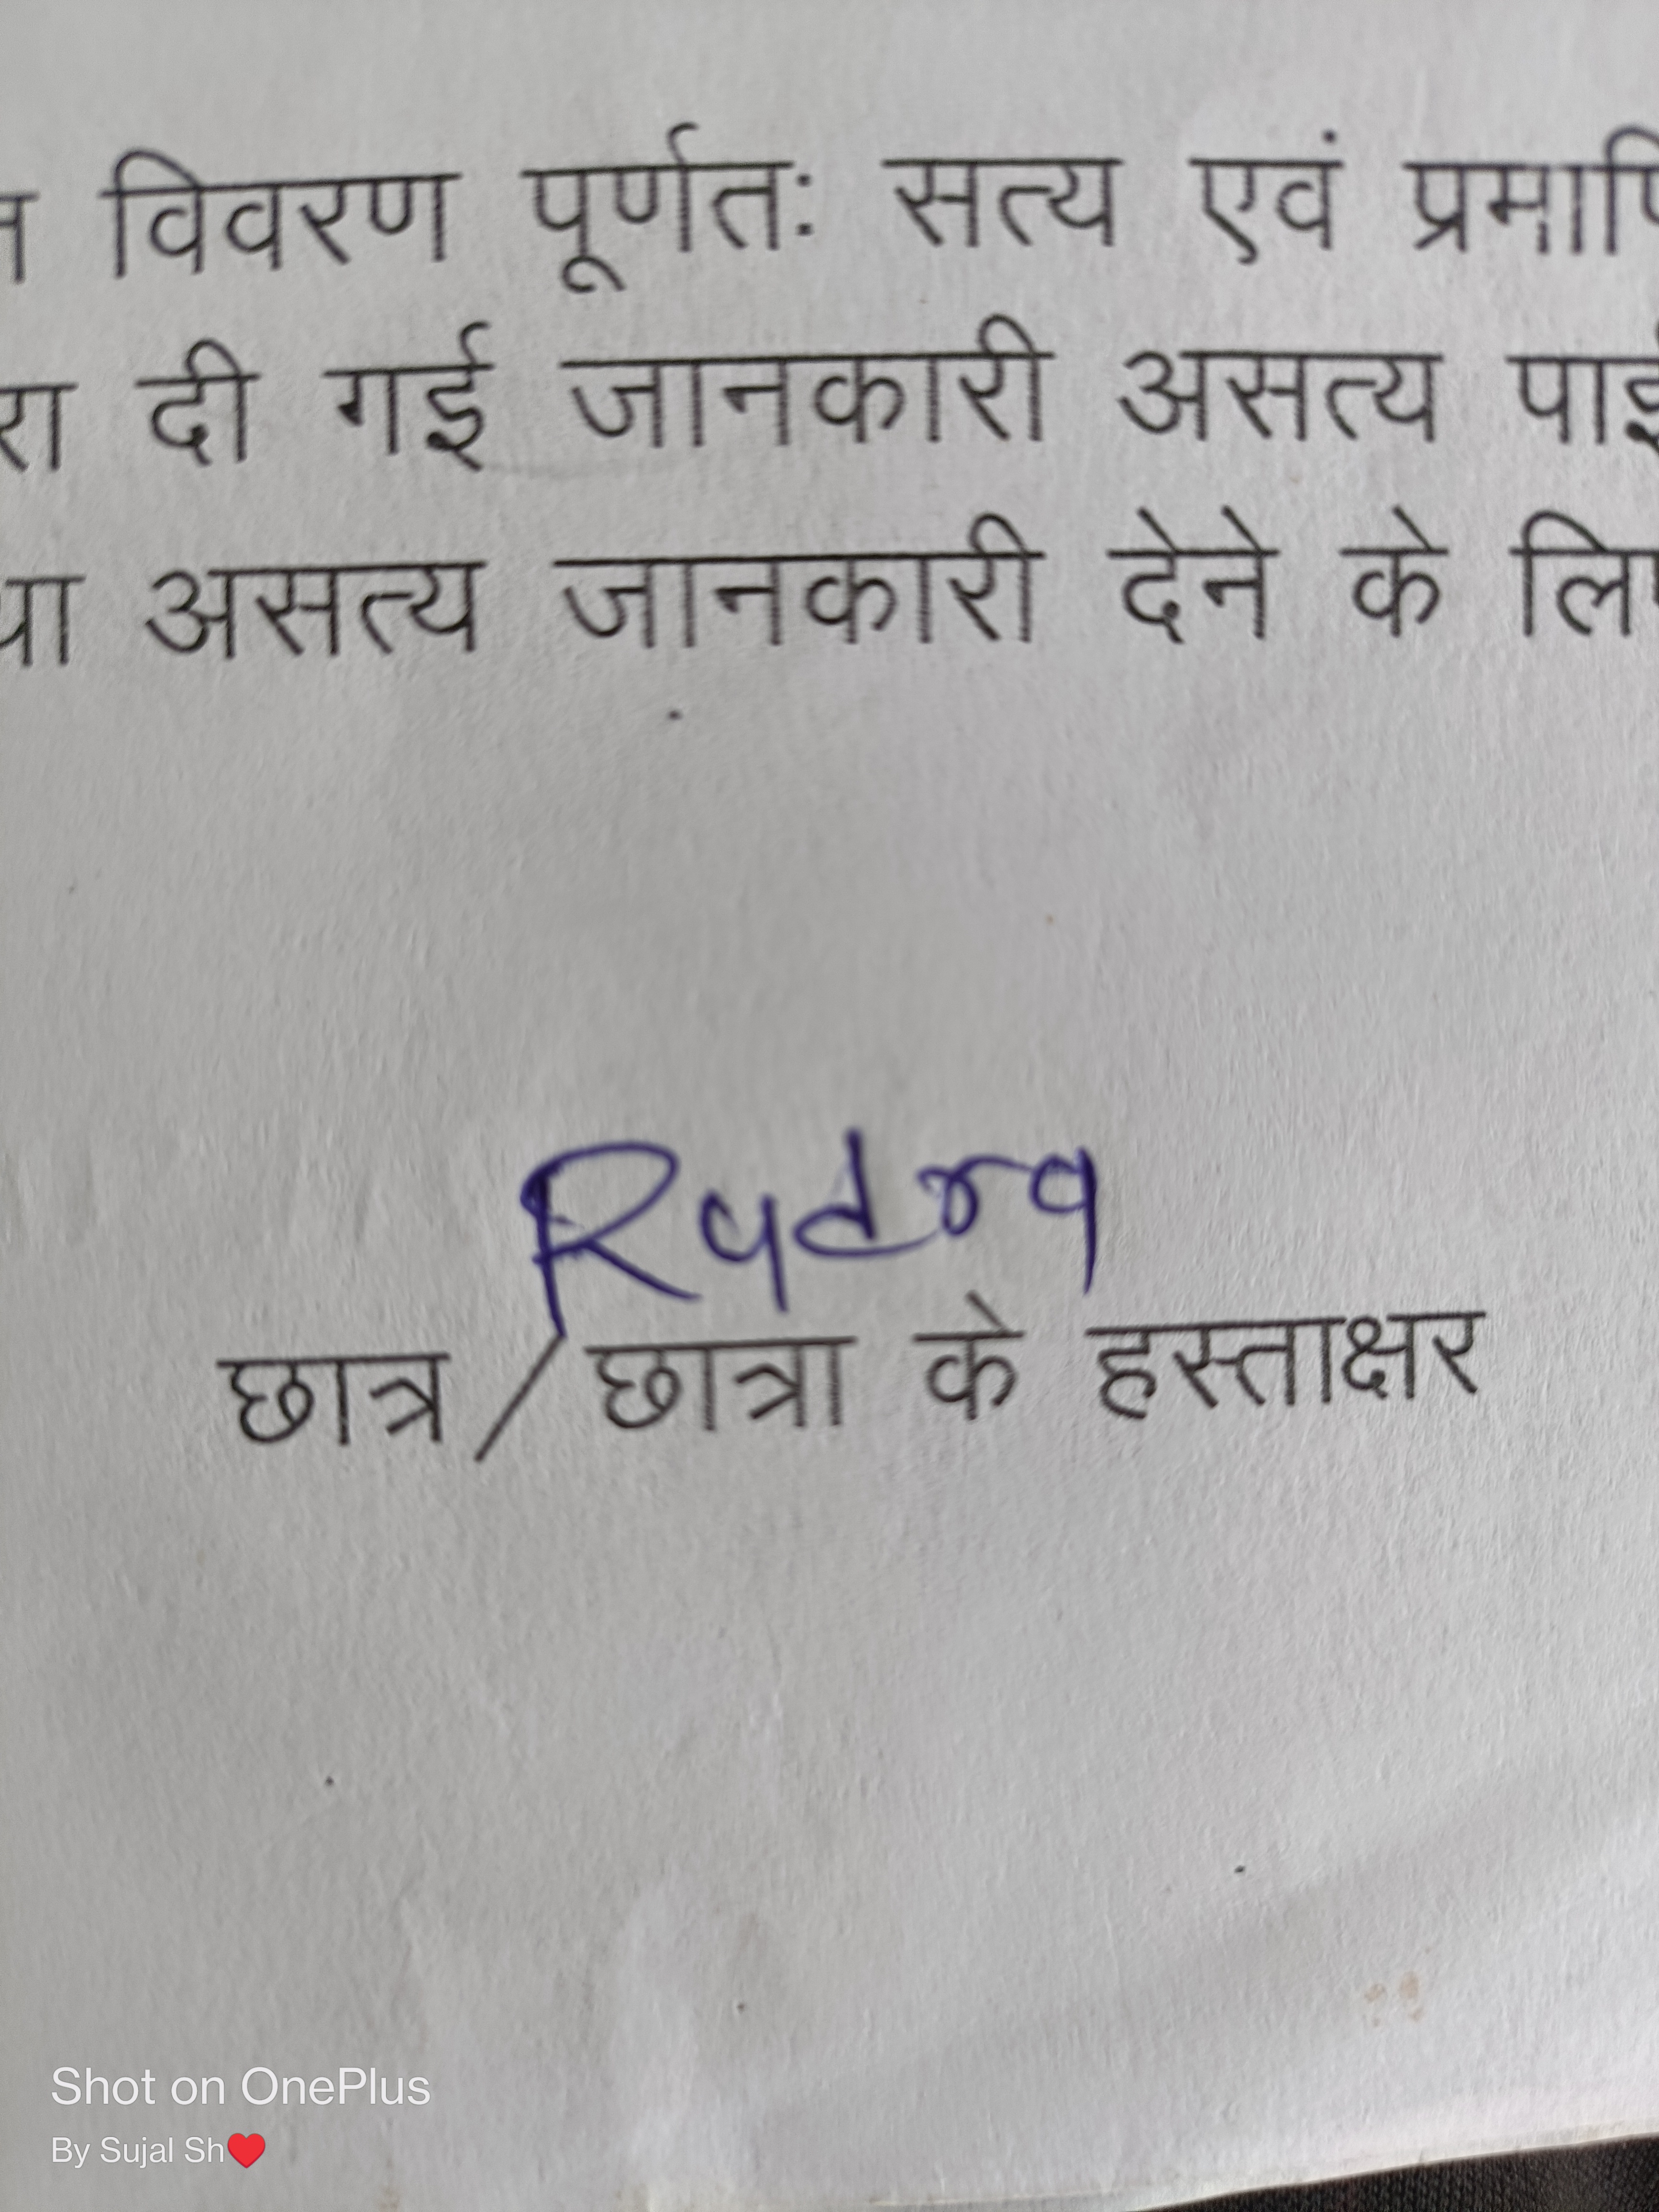 विवरण पूर्णतः सत्य एवं
दी गई जानकारी असत्य
असत्य जानकारी देने के
Rudra
छात्र / छात्रा के हस्ताक्षर
Shot on OnePlus
By Sujal Sh❤️